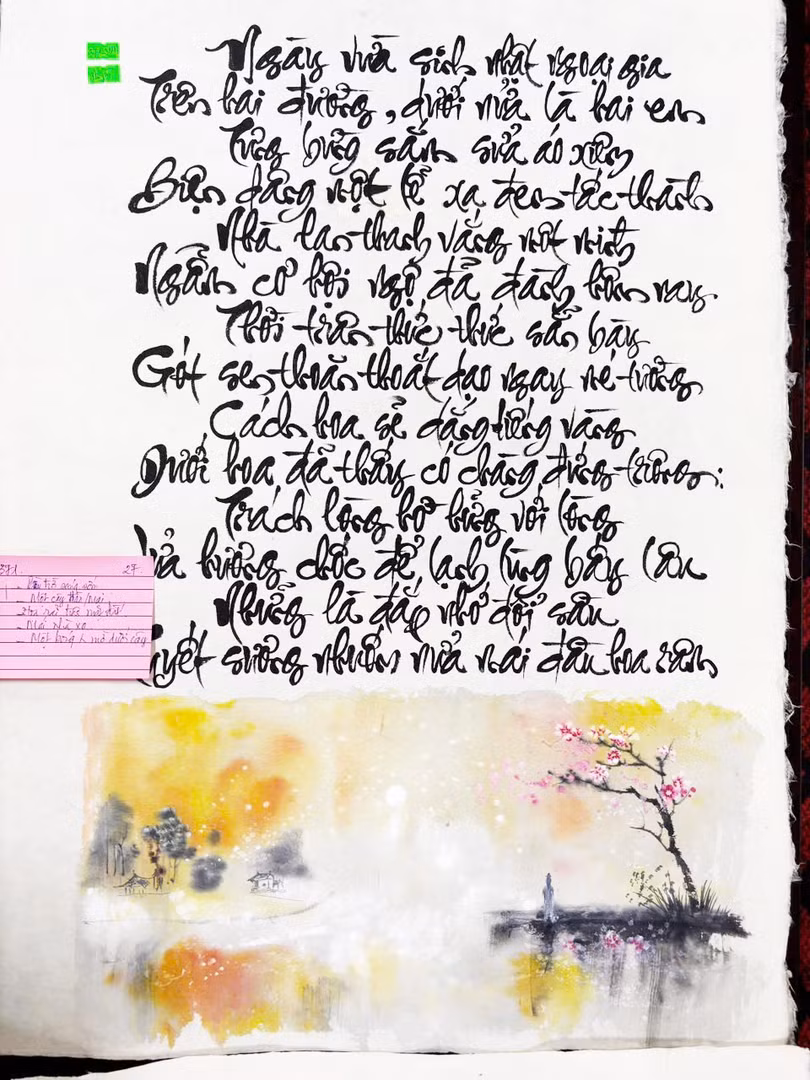 Ngày vừa sinh nhật ngoại gia
Trên hai đường, dưới nữa là hai em
Tưng bừng sắm sửa áo xiêm
Biện dâng một lễ xa đem tấc thành
Nhà lan thanh vắng một mình
Ngẫm cơ hội ngộ đã dành hôm nay.
Thời trân thức thức sẵn bày
Gót sen thoăn thoắt dạo ngay mé tường
Cách hoa sẽ dặng tiếng vàng
Dưới hoa đã thấy có chàng đứng trông:
Trách lòng hờ hững với lòng
Lửa hương chốc để lạnh lùng bấy lâu
Những là đắp nhớ đổi sầu
Tuyết sương nhuốm nửa mái đầu hoa râm
371. 27.
- Một cây
- Mái nhà xa
- Một bóng mờ dưới cây